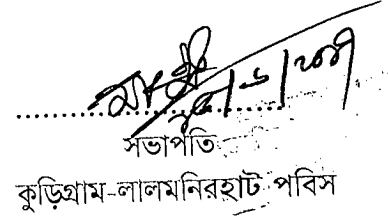 সভাপতি
কুড়িগ্রাম-লালমনিরহাট পবিস